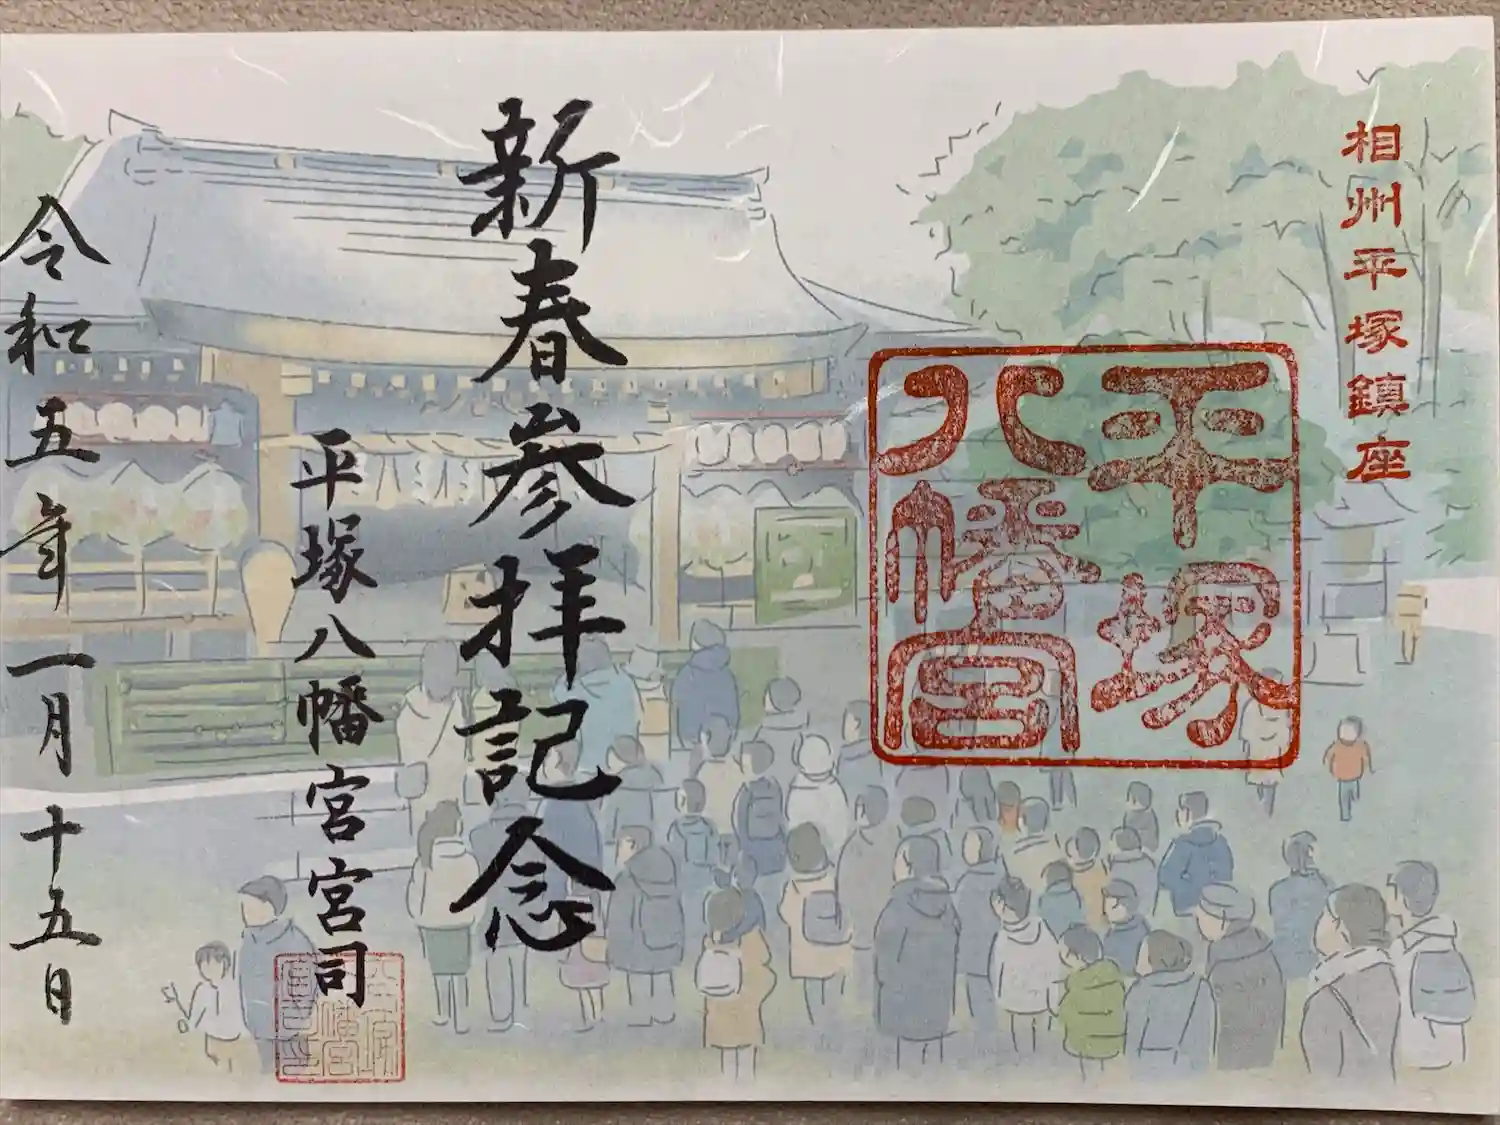 相州平塚鎮座
平塚
八幡宮
新春参拝記念
平塚八幡宮宮司
令和五年一月十五日